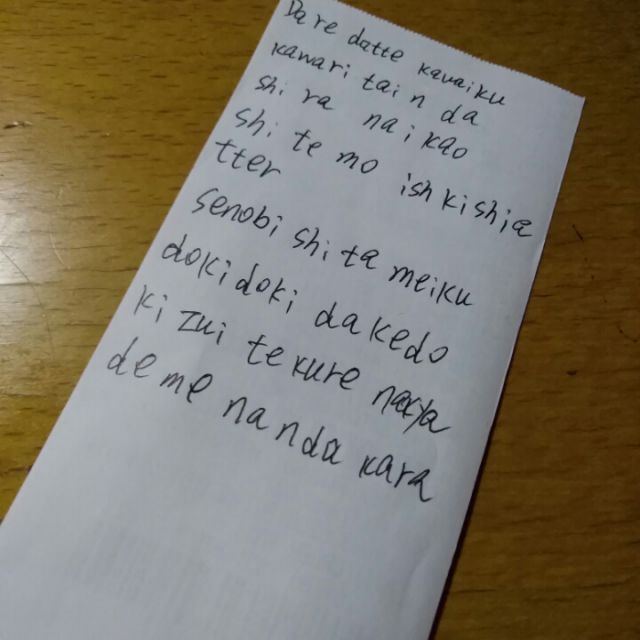 Dare datte kawaiku
kawari tai n da
shi ra nai kao
shi te mo ishkishia
tter
senobi shi ta meiku
doki doki dakedo
ki zui te kure
de me na n da kara